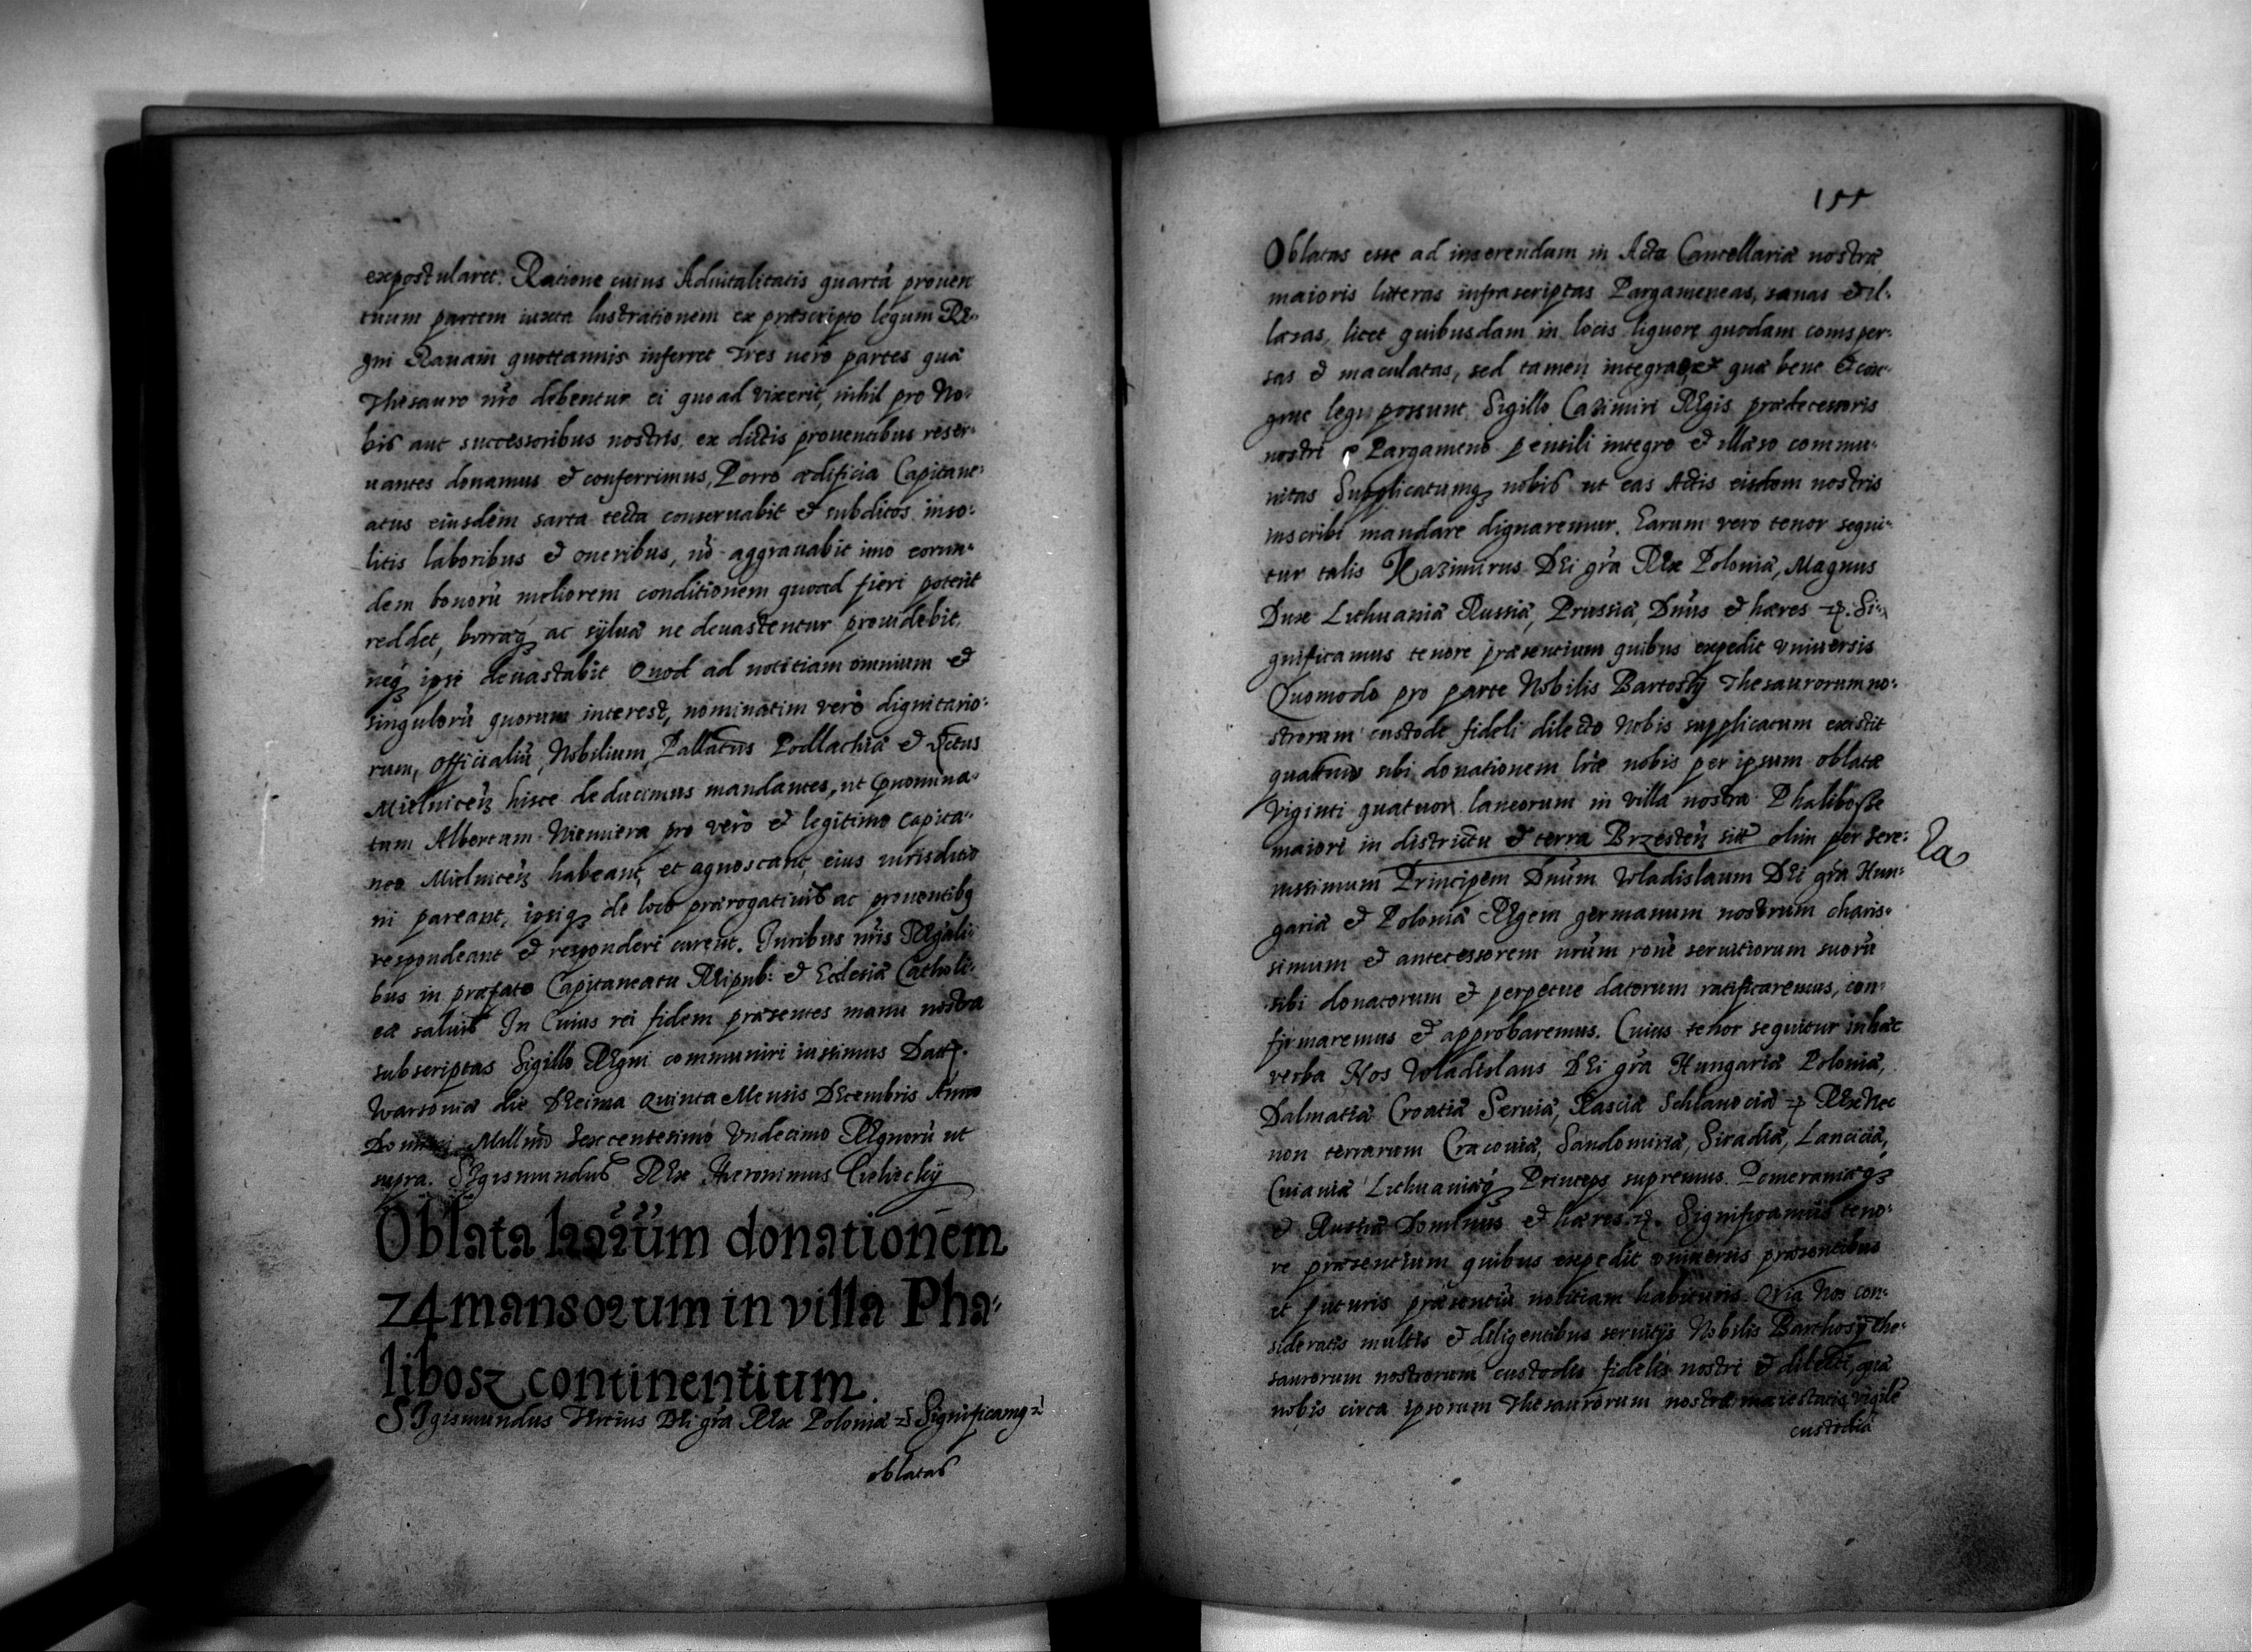 expostularet. Ratione cuius Aduitalitatis quartã prouen
tuum partem iuxta lustrationem ex præscripto legum Re-
gni Rauam quottannis inferret Tres uerò partes quæ
Thesauro nr̃o debentur ei quoad vixerit, nihil pro No-
bis aut successoribus nostris, ex dictis prouentibus reser-
uantes donamus et conferrimus, Porro ædificia Capitane-
atus eiusdem sarta tecta conseruabit et subditos inso-
litis laboribus et oneribus, nõ aggrauabit imo eorun-
dem bonorũ meliorem conditionem quoad fieri poterit
reddet, ac syluæ ne deuastentur prouidebit,
neq3 ipse deuastabit Quod ad notitiam omnium et
singulorũ quorum interest, nominatim verò dignitario-
rum, Officialiũ, Nobilium, Pallatũs Podlachiæ et
Mielniceñ hisce deducimus mandantes, ut
tum Albertum Niemiera pro vero et legitimo Capita-
neo Mielniceñ habeant, et agnoscant, eius iurisdictio
ni pareant, ipsiq3 de loco prærogatiuis ac prouentibq
respondeant et responderi curent. Iuribus nr̃is Regali-
bus in præfato Capitaneatu Reipub: et Ecclesiæ Catholi-
cæ saluis In Cuius rei fidem præsentes manu nostra
subscriptas Sigillo Regni communiri iussimus Datt.
Warsouiæ die Decima Quinta Mensis Decembris Anno
Domini Millmõ Sexcentesimo Vndecimo Regnorũ ut
supra. Sigismundus Rex Hieronimus Cielecky
Oblata donationem
24 mansorum in villa Pha-
libosz continentium.
SIgismundus Tertius Dei gr̃a Rex Poloniæ Significamq
oblatas
155
Oblatas esse ad inserendum in Acta Cancellariæ nostræ
maioris literas infrascriptas Pargameneas, sanas et il-
læsas, licet quibusdam in locis liquore quodam consper-
sas et maculatas, sed tamen integras quæ bene et con-
grue legi possunt Sigillo Casimiri Regis prædecessoris
nostri Pargameno pensili integro et illæso commu-
nitas Supplicatumq3 nobis ut eas Actis eisdem nostris
inscribi mandare dignaremur. Earum vero tenor sequi-
tur talis Kazimirus Dei gr̃a Rex Poloniæ, Magnus
Dux Lithuaniæ Russiæ, Prussiæ, Dnũs et hæres Si-
gnificamus tenore præsentium quibus expedit vniuersis
Quomodo pro parte Nobilis Bartossy Thesaurorum no-
strorum custode fideli dilecto Nobis supplicatum existit
quatenus sibi donationem lr̃æ nobis per ipsum oblatæ
viginti quatuor laneorum in villa nostra Phalibosze
maiori in districtu et terra Brzesteñ sitt olim per Sere-
nissimum Principem Dnũm Wladislaum Dei gr̃a Hun-
gariæ et Poloniæ Regem germanum nostrum charis-
simum et antecessorem nr̃um ronẽ seruitiorum suorũ
sibi donatorum et perpetue datorum ratificaremus, con-
firmaremus et approbaremus. Cuius tenor sequitur in hæc
verba Nos Wladislaus Dei gr̃a Hungariæ Poloniæ,
Dalmatiæ Croatiæ Seruiæ, Rasciæ Rex nec
non terrarum Cracouiæ, Sandomiriæ, Siradiæ, Lanciciæ,
Cuiauiæ Lithuaniæq3 Princeps supremus Pomeraniæq3
et Russiæ Dominus et hæres. Significamus teno-
re præsentium quibus expedit vniuersis præsentibus
et futuris præsentiũ notitiam habituris. Quia Nos con-
sideratis multis et diligentibus seruitijs Nobilis Barthosy The-
saurorum nostrorum custodis fidelis nostri et dilecti, quæ
nobis circa ipsorum Thesaurorum nostræ maiestatis vigilẽ
custodiã